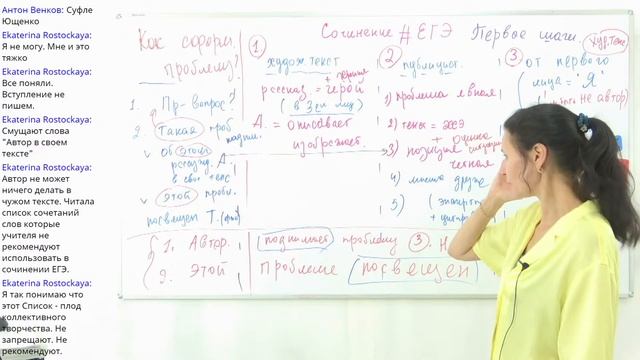 Антон Венков: Суфле
Ющенко
Ekaterina Rostockaya:
Я не могу. Мне и это
тяжко
Ekaterina Rostockaya:
Все поняли.
Вступление не
пишем.
Ekaterina Rostockaya:
Смущают слова
"Автор в своем
тексте"
Ekaterina Rostockaya:
Автор не может
ничего делать в
чужом тексте. Читала
список сочетаний
слов которые
учителя не
рекомендуют
использовать в
сочинении ЕГЭ.
Ekaterina Rostockaya:
Я так понимаю что
этот Список - плод
коллективного
творчества. Не
запрещают. Не
рекомендуют.
Сочинение #ЕГЭ Первое шаги.
Как оформ.
проблему?
1. Пр- вопрос?
2. Такая проб
V Об этой
рассужд. А.
в своё текс
V этой пробл.
посвящен Т.
1. Автор.
2. Этой
1
худож текст
+ герой
рассказ. =
(в 3ем лиц)
А. = описывает
изображает
2
публицист.
1) проблема явная
2) текст = эссе
3) позиция
+ оценка
ситуации
четкая
4) мнения други
5)
3
Худ. текс
от первого
лица = "Я"
не автор)
поднимает проблему 3. Н
проблеме посвящен